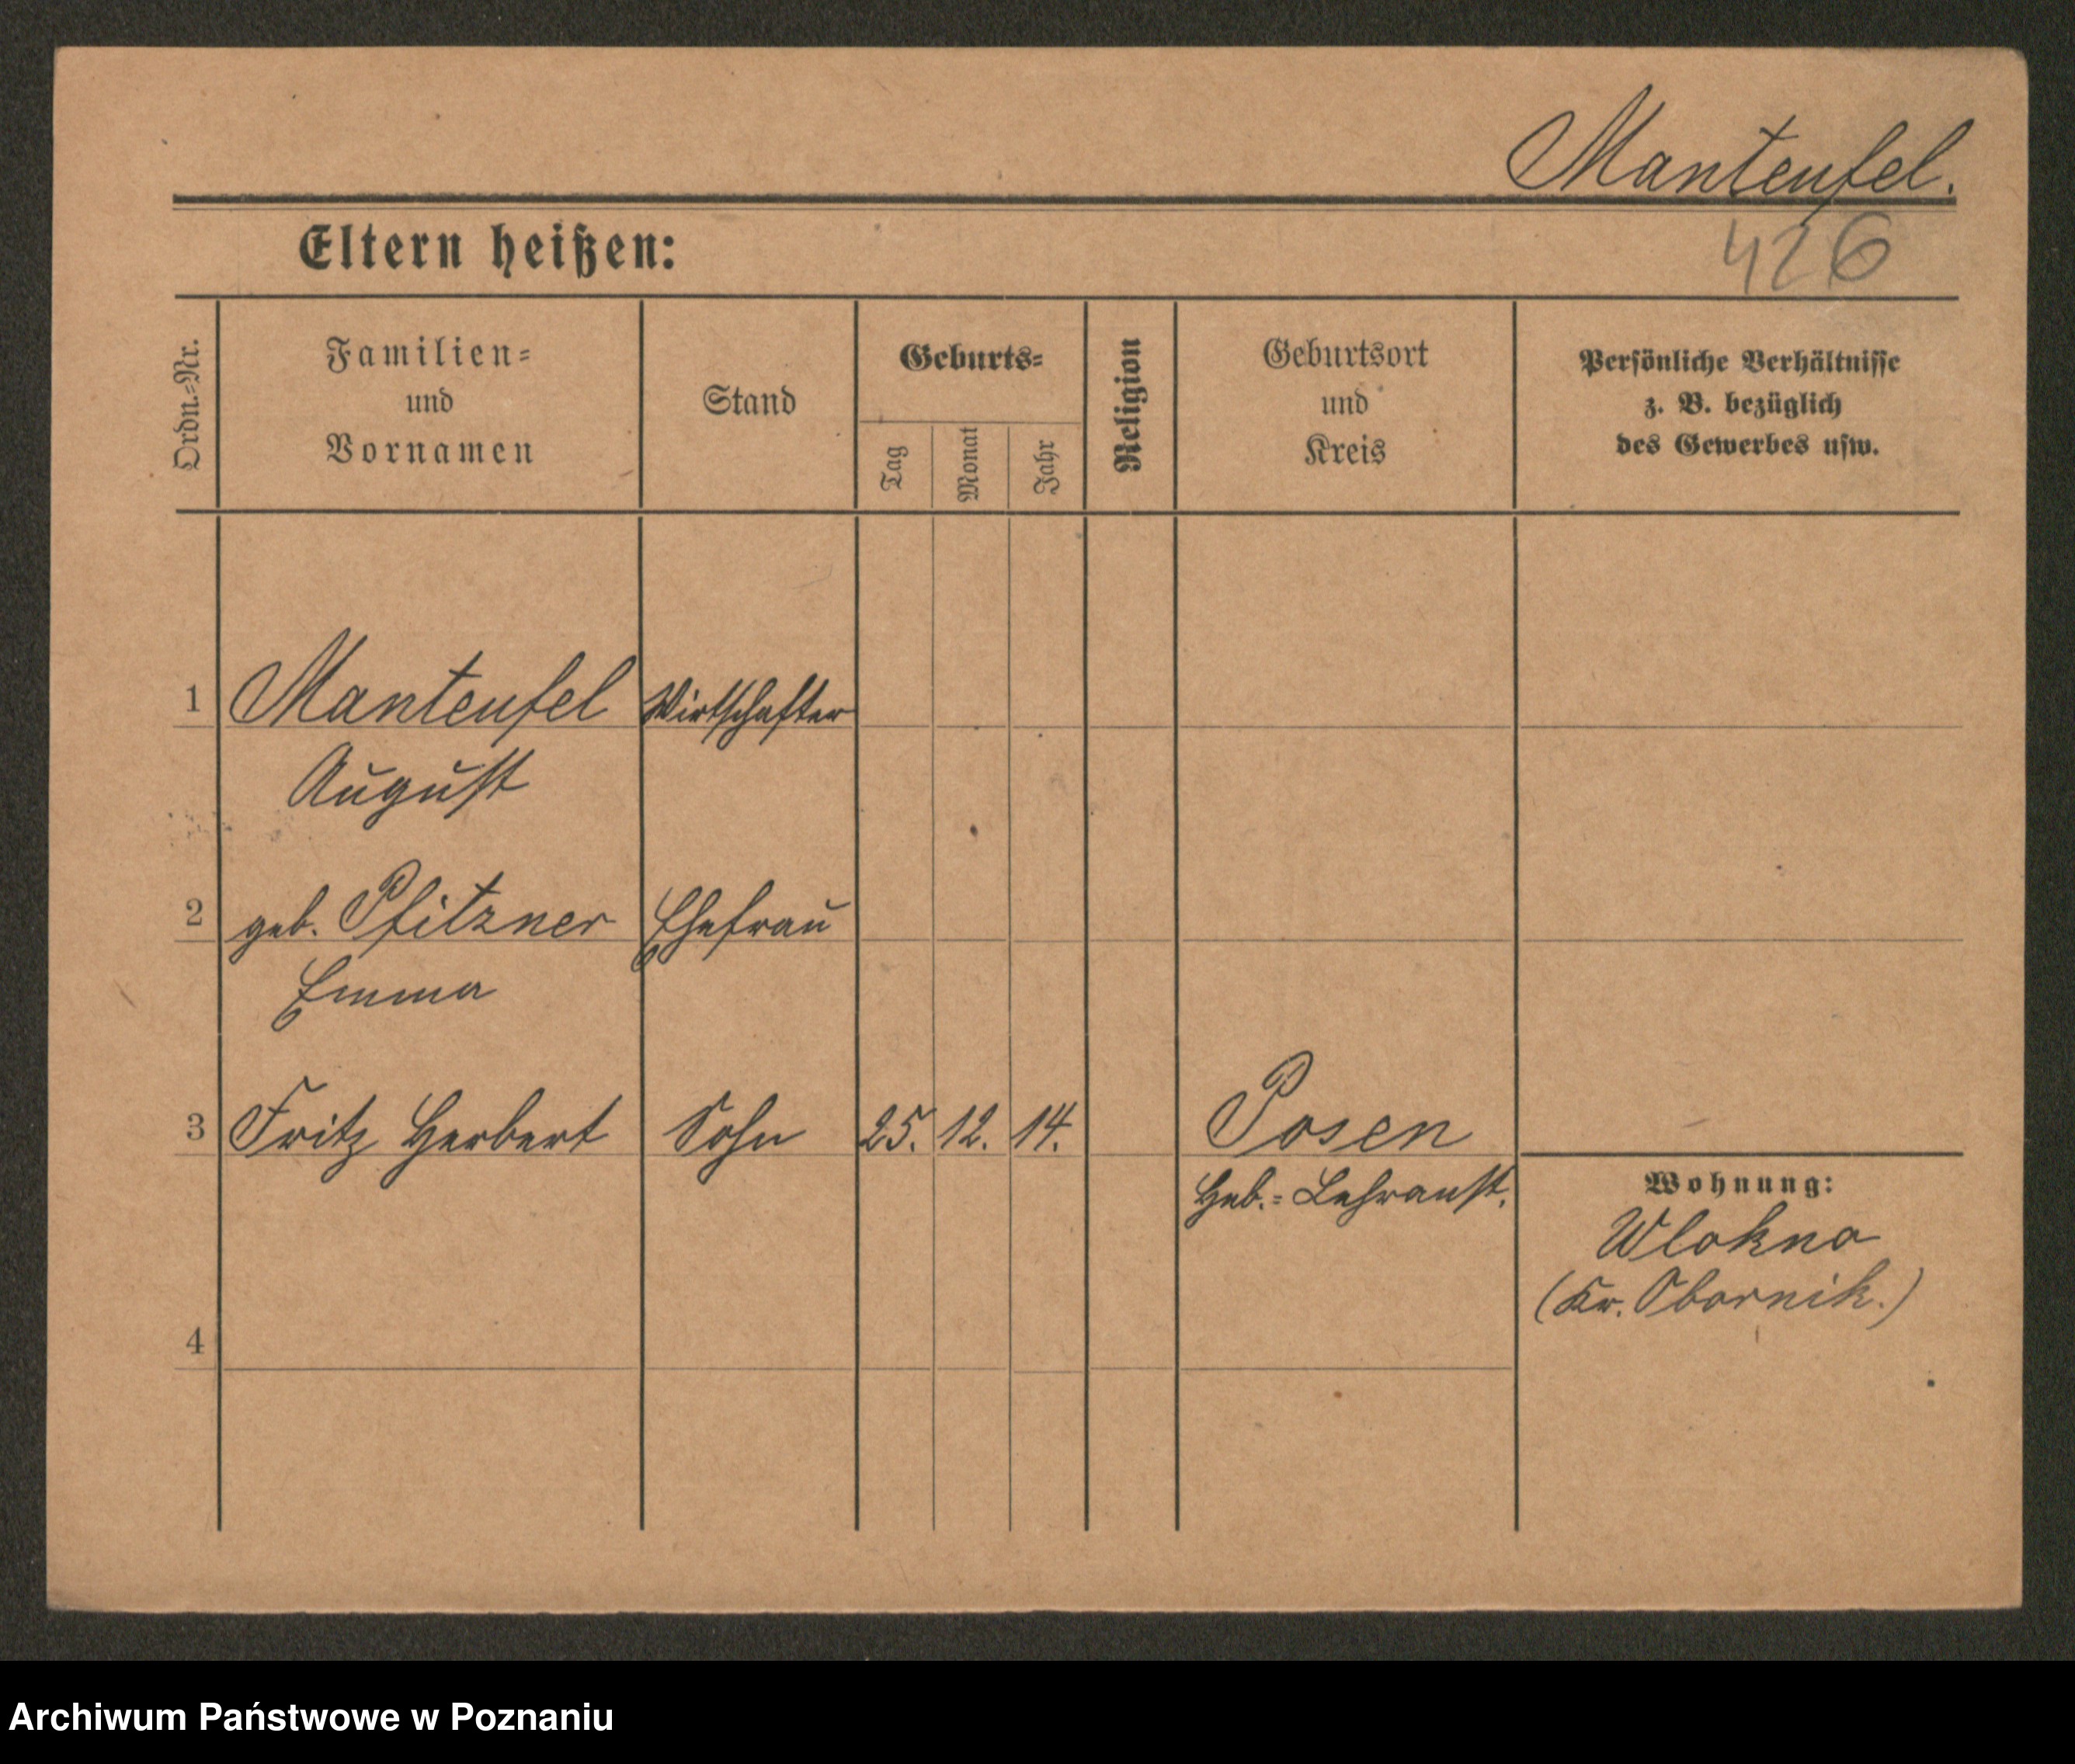 Manteufel.
426
Eltern heißen:
Ordn.-Nr.
Familien-
und
Vornamen
Stand
Geburts-
Tag
Monat
Jahr
Religion
Geburtsort
und
Kreis
Persönliche Verhältnisse
z. B. bezüglich
des Gewerbes usw.
1 Manteufel Wirtschafter
August
2 geb. Pfitzner Ehefrau
Emma
3 Fritz Herbert Sohn 25. 12. 14. Posen
Heb.-Lehranst.
Wohnung:
Wlokno
(Kr. Obornik.)
4
Archiwum Państwowe w Poznaniu